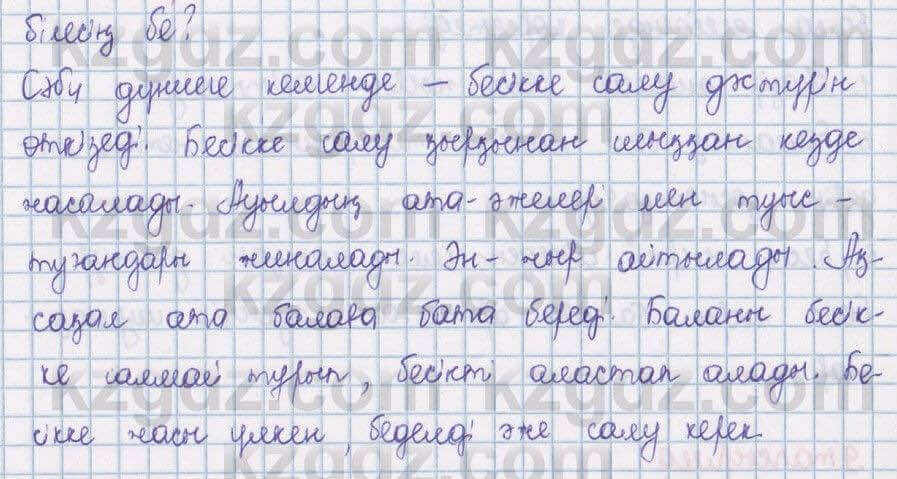 білесің бе?
Сәби дүниеге келгенде – бесікке салу дәстүрін
өткізеді. Бесікке салу қырқынан шыққан кезде
жасалады. Ауылдың ата-әжелері мен туыс-
тугандары жиналады. Ән-жыр айтылады. Ақ-
сақал ата балаға бата береді. Баланы бесік-
ке салмай тұрып, бесікті аластап алады. Бе-
сікке жасы үлкен, беделді әже салу керек.